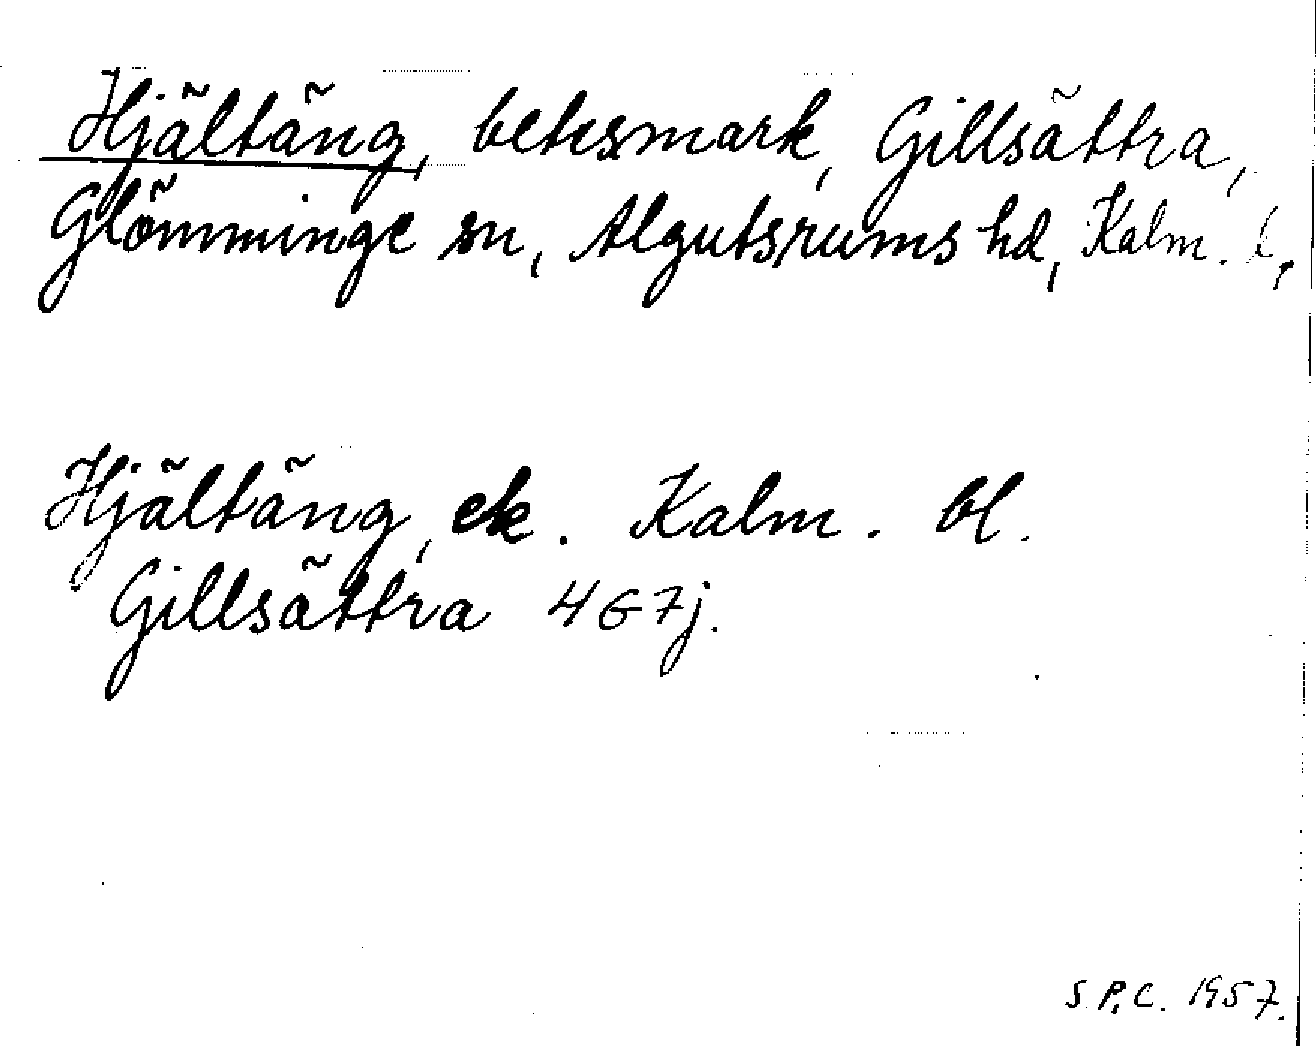 Hjältäng, betesmark, Gillsättra,
Glömminge sn, Algutsrums hd, Kalm. l,
Hjältäng, ek. Kalm. bl.
Gillsättra 4G7j.
S.P.C. 1957.